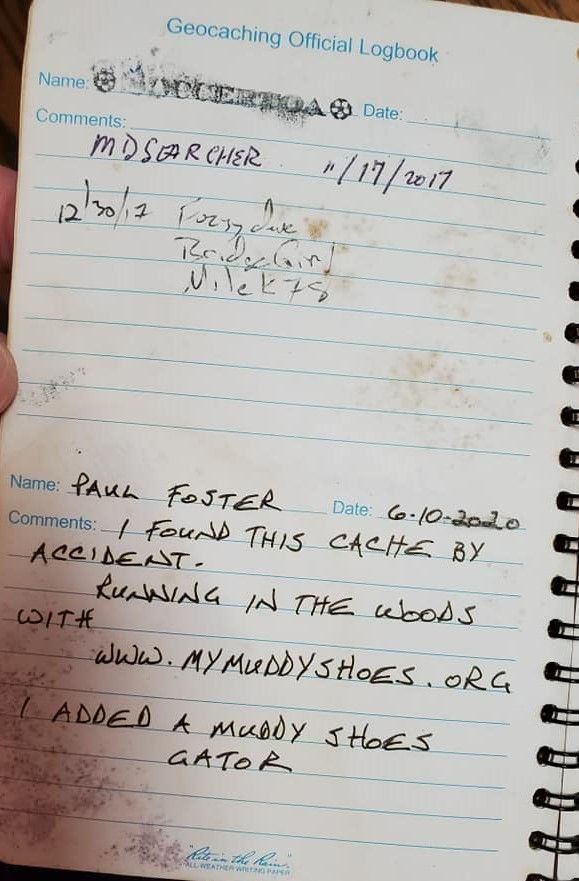 Geocaching Official Logbook
Name: Date:
Comments:
MDSEARCHER 11/17/2017
12/30/17
Bridge Girl
Name: PAUL FOSTER Date: 6-10-2020
Comments: I FOUND THIS CACHE BY
ACCIDENT.
RUNNING IN THE WOODS
WITH
WWW.MYMUDDYSHOES.ORG
I ADDED A MUDDY SHOES
GATOR
"Rite in the Rain"
ALL-WEATHER WRITING PAPER